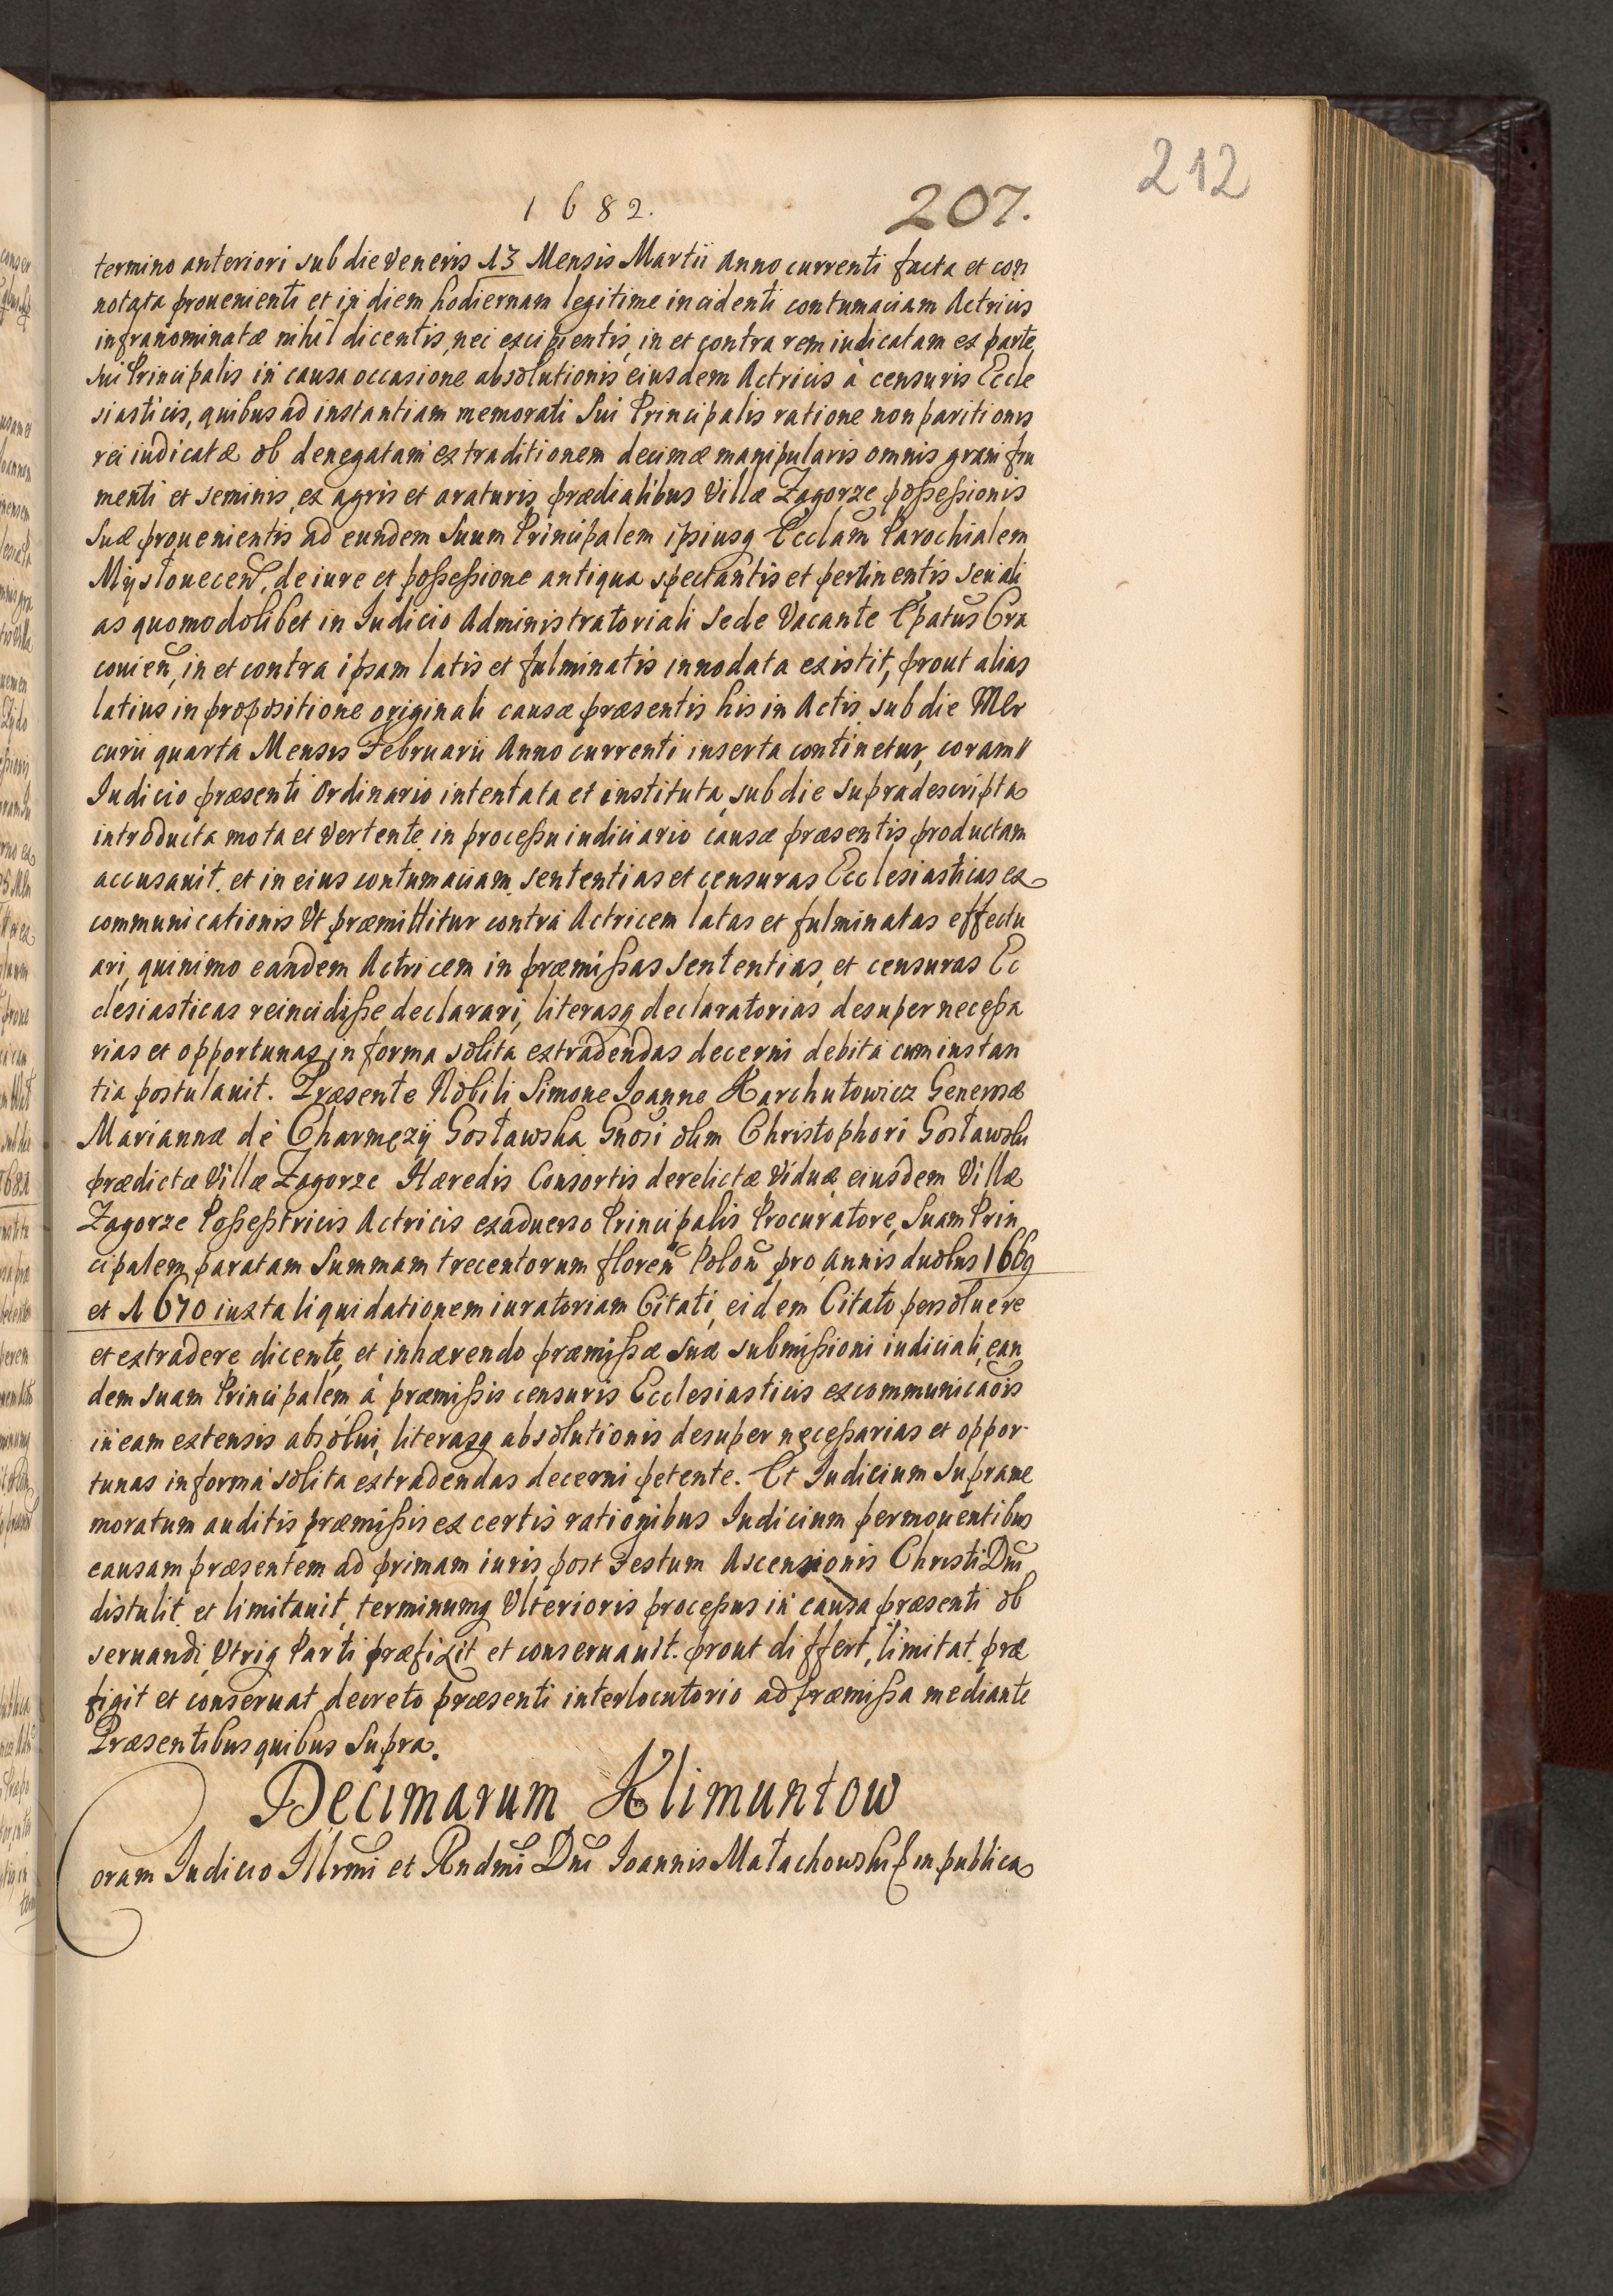 212
1682. 207.
termino anteriori sub die Veneris 13 Mensis Martii Anno currenti facta et con
notata prouenienti et in diem hodiernam legitime incidenti contumaciam Actricis
infranominatæ nihil dicentis, nec excipientis, in et contra rem iudicatam ex parte
sui Principalis in causa occasione absolutionis eiusdem Actricis à censuris Eccle
siasticis, quibus ad instantiam memorati Sui Principalis ratione non paritionis
rei iudicatæ ob denegatam extraditionem decimæ manipularis omnis grani fru
menti et seminis, ex agris et araturis prædialibus Villæ Zagorze possessionis
Suæ prouenientis ad eundem Suum Principalem ipsiusq Ecclam Parochialem
Mysłouecen, de iure et possessione antiqua spectantis et pertinentis seu ali
as quomodolibet in Iudicio Administratoriali Sede Vacante Epatus Cra
couien, in et contra ipsam latis et fulminatis innodata existit, prout alias
latius in propositione originali causæ præsentis his in Actis sub die Mer
curii quarta Mensis Februarii Anno currenti inserta continetur, coram
Iudicio præsenti Ordinario intentata et instituta, sub die supradescripta
introducta mota et vertente in processu iudiciario causæ præsentis productam
accusauit. et in eius contumaciam sententias et censuras Ecclesiasticas ex
communicationis Ut præmittitur contra Actricem latas et fulminatas effectu
ari, quinimo eandem Actricem in præmissas Sententias, et censuras Ec
clesiasticas reincidisse, declarari, literasq declaratorias desuper necessa
rias et opportunas in forma solita extradendas decerni debita cum instan
tia postulauit. Præsente Nobili Simone Ioanne Karchutowicz Generosæ
Mariannæ de Charmęzÿ Gosławska Gnosi olim Christophori Gosławski
prædictæ Villæ Zagorze Hæredis Consortis derelictæ Viduæ eiusdem Villæ
Zagorze Possestricis Actricis exaduerso Principalis Procuratore, Suam Prin
cipalem paratam Summam trecentorum floren Polon pro Annis duobus 1669
et 1670 iuxta liquidationem iuratoriam Citati, eidem Citato persoluere
et extradere dicente, et inhærendo præmissæ suæ submissioni iudiciali, ean
dem suam Principalem à præmissis censuris Ecclesiasticis excommunicaois
in eam extensis absolui, literasq absolutionis desuper necessarias et oppor-
tunas in forma solita extradendas decerni petente. Et Iudicium Suprame
moratum auditis præmissis ex certis rationibus Iudicium permouentibus
causam præsentem ad primam iuris post Festum Ascensionis Christi Dni
distulit et limitauit, terminumq Ulterioris processus in causa præsenti ob
seruandi Utriq Parti præfixit et conseruauit. prout differt, limitat. præ
figit et conseruat decreto præsenti interlocutorio ad præmissa mediante
Præsentibus quibus Supra.
Decimarum Klimuntow
Coram Iudicio Illrmi et Rndmi Dni Ioannis Małachowski in publica